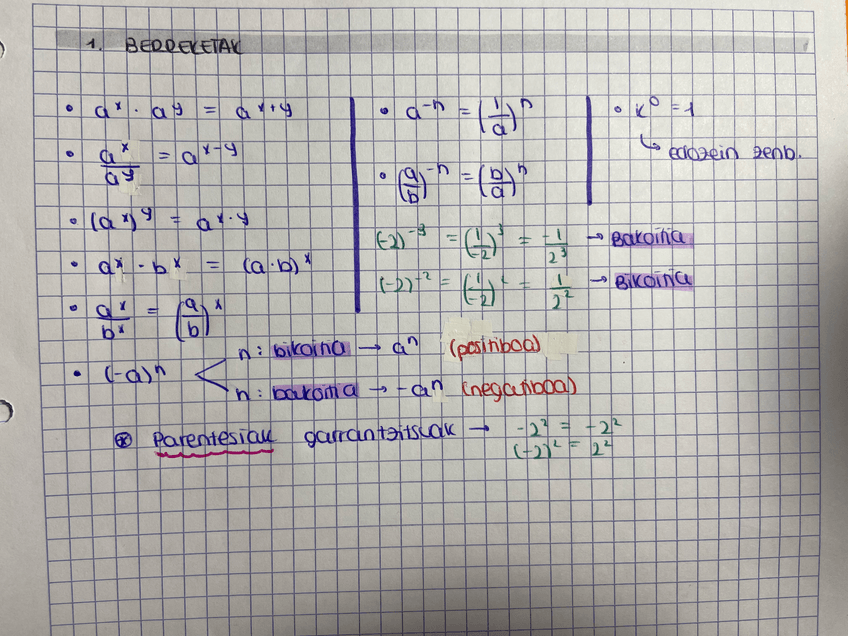 1. BERREKETAK
• a^x · a^y = a^(x+y)
• a^x / a^y = a^(x-y)
• (a^x)^y = a^(x·y)
• a^x · b^x = (a·b)^x
• a^x / b^x = (a/b)^x
• a^-n = (1/a)^n
• (a/b)^-n = (b/a)^n
(-2)^-3 = (1/-2)^3 = -1/2^3 → Bakoitia
(-2)^-2 = (1/-2)^2 = 1/2^2 → Bikoitia
• x^0 = 1
↳ edozein zenb.
• (-a)^n < n: bikoitia → a^n (positiboa)
n: bakoitia → -a^n (negatiboa)
⊛ Parentesiak garrantzitsuak → -2^2 = -2^2
(-2)^2 = 2^2